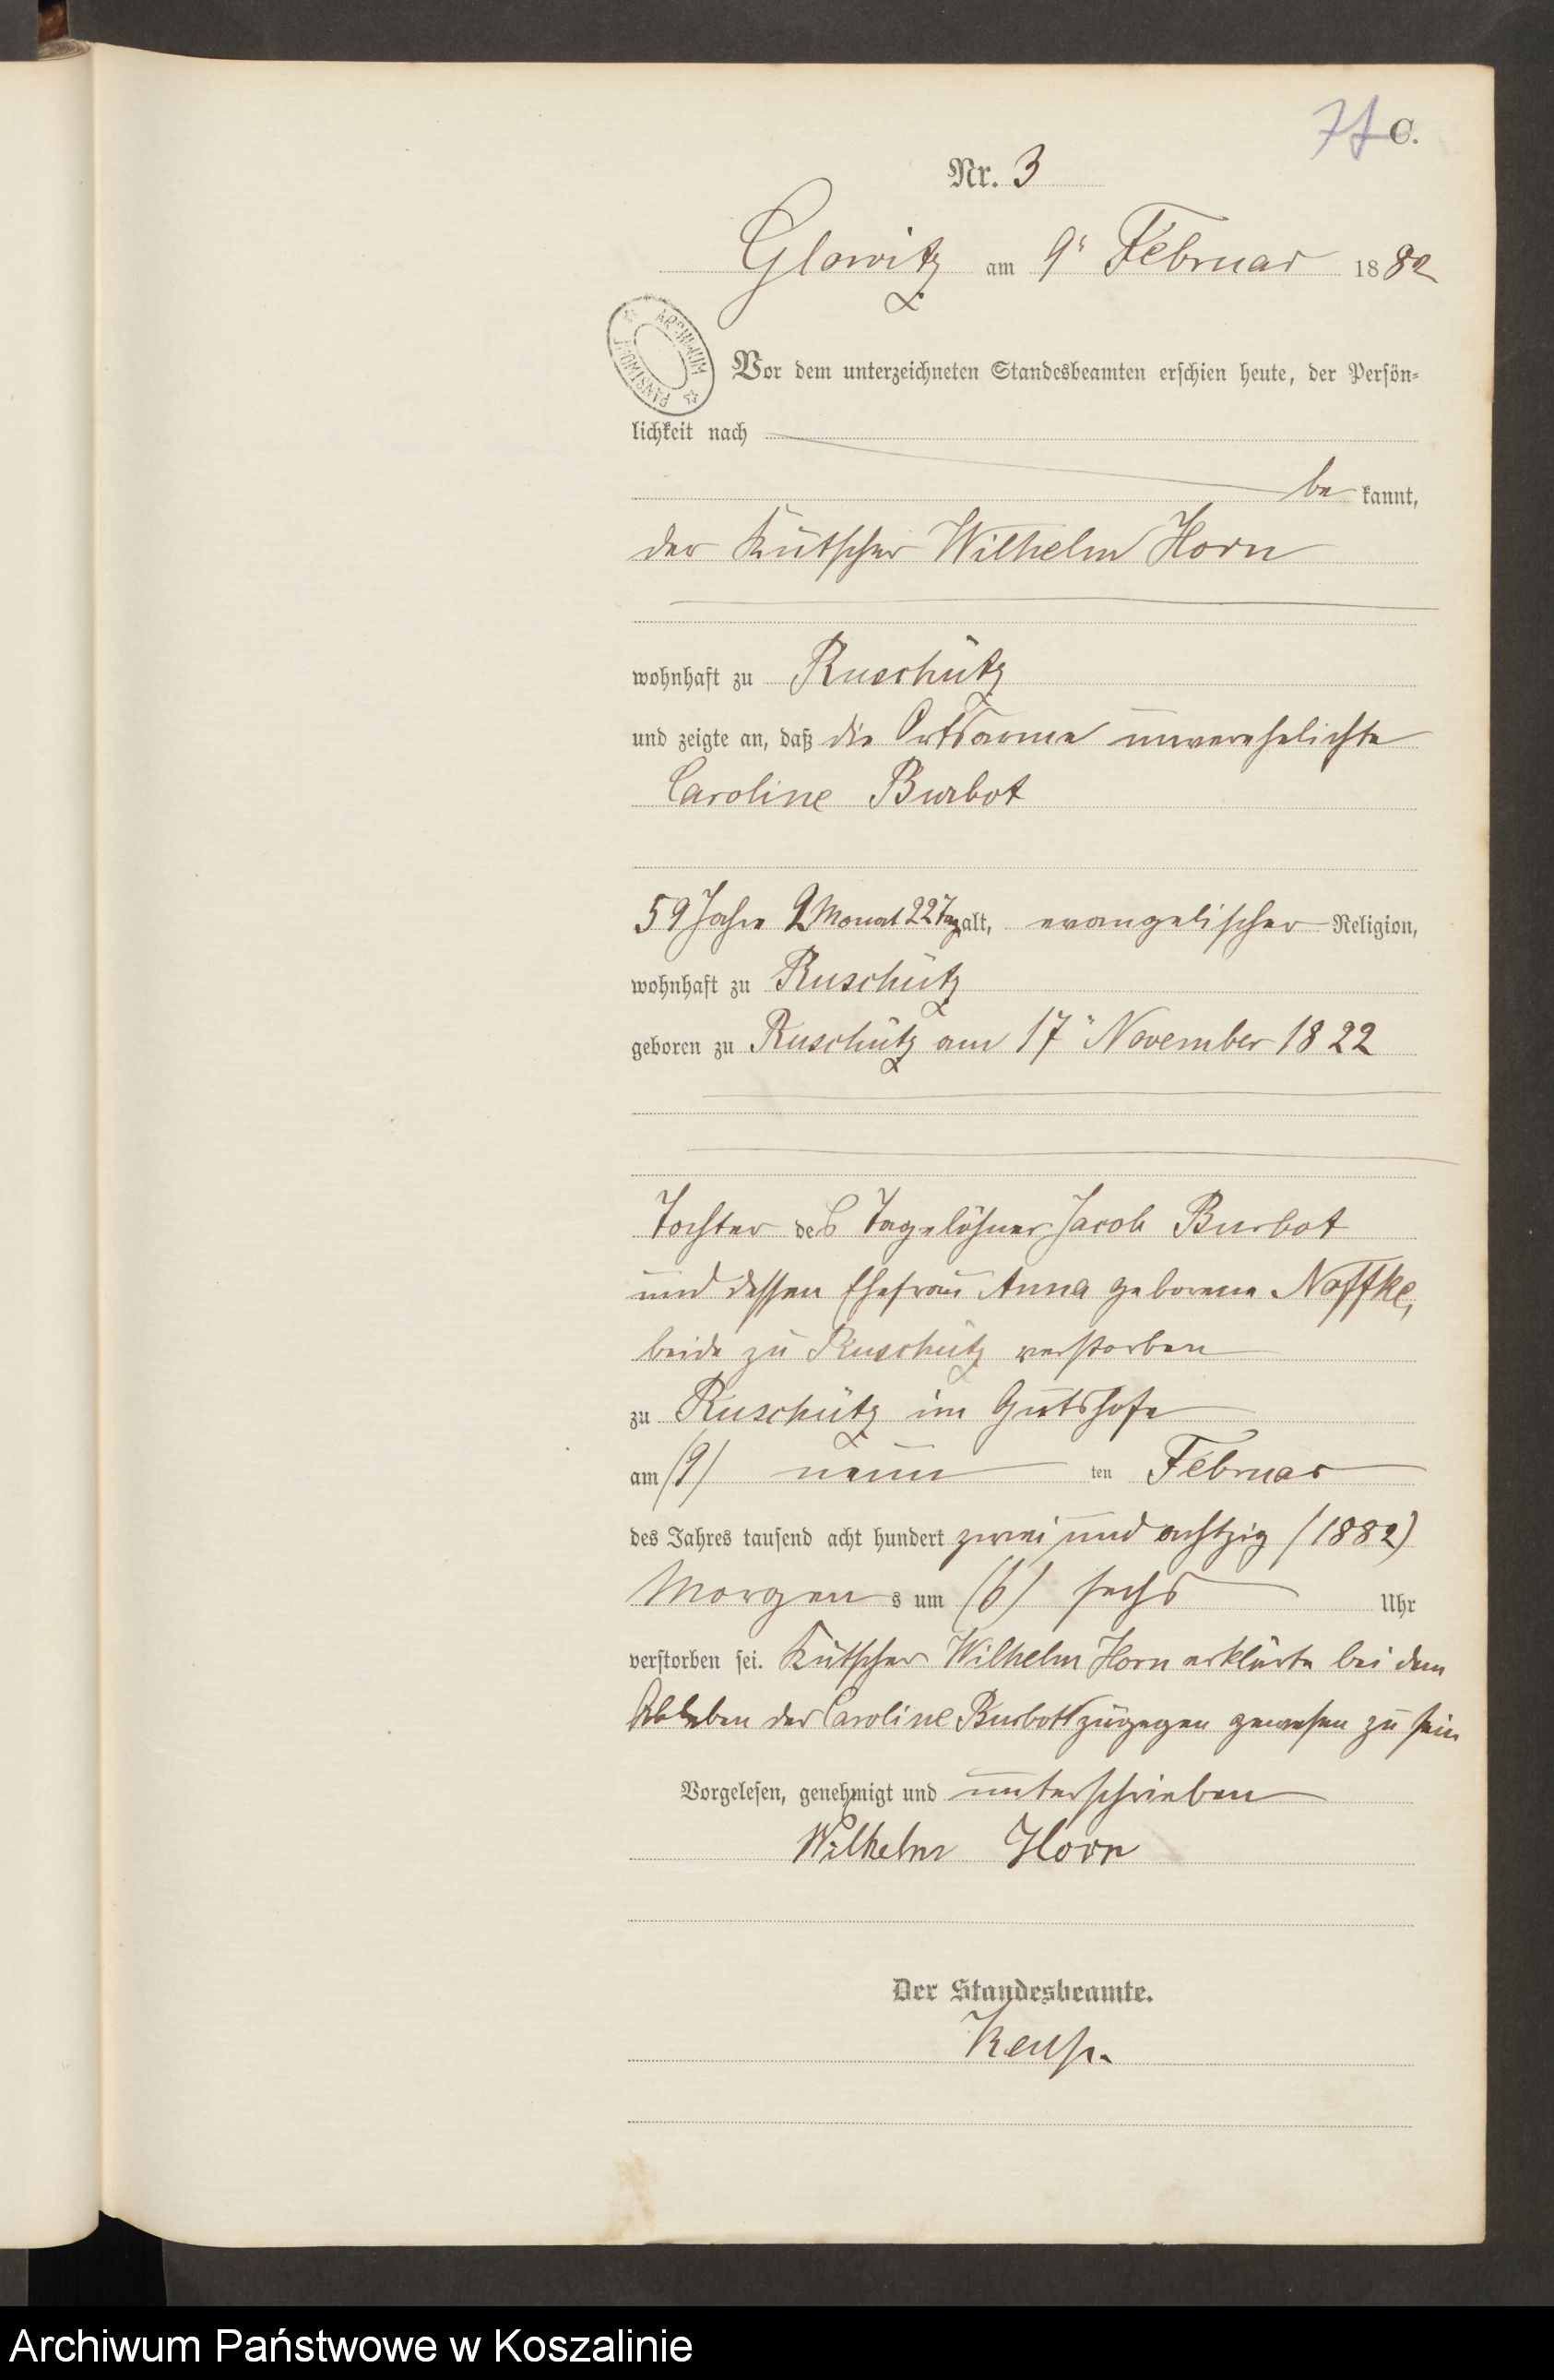 C.
Nr. 3
Glowitz am 9ᵗ Februar 1882
ARCHIWUM PAŃSTWOWE
Vor dem unterzeichneten Standesbeamten erschien heute, der Persön-
lichkeit nach
be kannt,
der Kutscher Wilhelm Horn
wohnhaft zu Ruschütz
und zeigte an, daß die Ortsarme unverehelichte
Caroline Burbot
59 Jahre 2 Monat 22 Tag alt, evangelischer Religion,
wohnhaft zu Ruschütz
geboren zu Ruschütz am 17" November 1822
Tochter des Tagelöhner Jacob Burbot
und dessen Ehefrau Anna geborene Noffke,
beide zu Ruschütz verstorben
zu Ruschütz im Gutshofe
am (9) neun ten Februar
des Jahres tausend acht hundert zwei und achtzig (1882)
Morgen s um (6) sechs Uhr
verstorben sei. Kutscher Wilhelm Horn erklärte bei dem
Ableben der Caroline Burbott zugegen gewesen zu sein
Vorgelesen, genehmigt und unterschrieben
Wilhelm Horn
Der Standesbeamte.
Archiwum Państwowe w Koszalinie